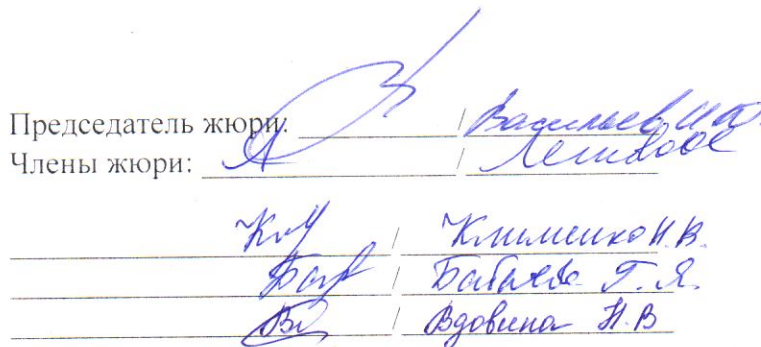 Председатель жюри: / Васильев И.
Члены жюри: /
/ Клименко Н.В.
/ Бабаева Г.Я.
/ Вдовина Н.В